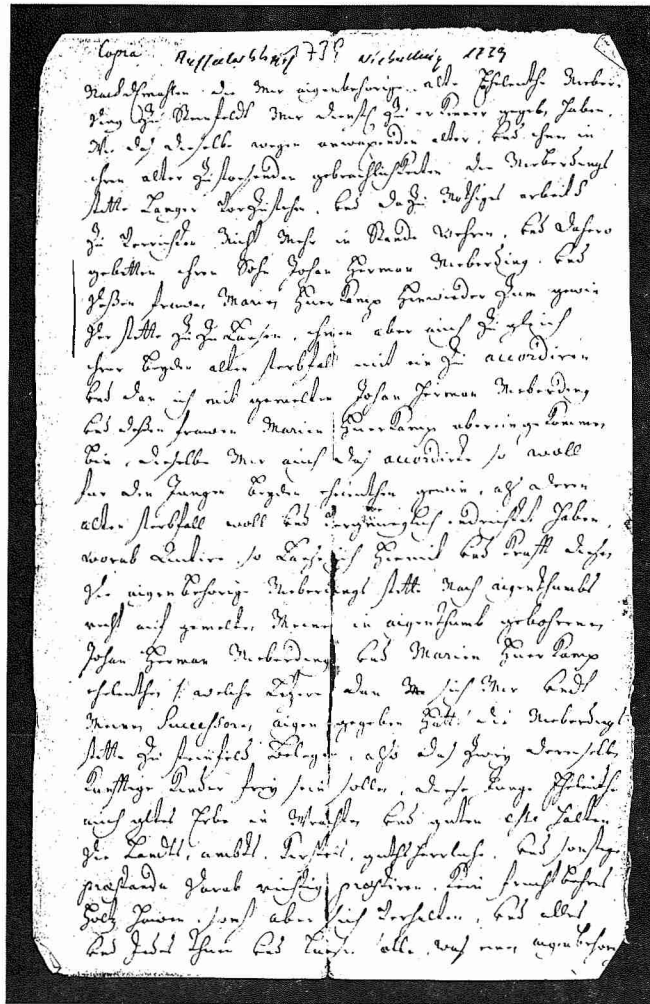 Copia Auffarhtsbrief 739 Nieberding 1729
Nachdemahlen die mir aigenbehorige alte Eheleuthe Nieber-
ding zu Steinfeldt mir dienstl. zu erkennen gegeb. haben,
wie daß dieselbe wegen anwaxenden alter, und ihnen in
ihren alter zustoßenden gebrechlichkeiten die Nieberdings
stette langer vorzustehen, und dazu nothiges arbeidt
zu verrichten nicht mehr in stande wehren, und dahero
gebetten ihren Sohn Johan Herman Nieberding und
deßen frawen Marien Huerkamp hinwieder zum gewin
der stette zu zu laßen, ihnen aber auch zu gleich
ihrer beyden alten sterbfall mit ein zu accordiren
und dan ich mit gemelten Johan Herman Nieberding
und deßen frawen Marien Huerkamp übereingekommen
bin, dieselbe mir auch daß accordirte so woll
für der jungen beyden eheleuthen gewin, alß deren
alten sterbfall woll und vergnueglich endrichtet haben,
worab quitire, so laße ich hiemit und krafft dieses
die aigenbehorige Nieberdings stette nach aigenthumbs
recht auf gemelten meinen in aigenthumb gebohrenen
Johan Herman Nieberding und Marien Huerkamp
eheleuthen /: welche letzere dan sich mir undt
meinen Successoren aigen gegeben hatt: die Nieberdings
stette zu steinfeldt belegen, also daß zwey derenselben
kunfftige kinder frey sein sollen, diese junge Eheleuthe
auch altes Erbe in wrachten und guten esse halten
die landts, ambts, kirspels, guthsherrliche, und sonstige
praestanda darab richtig praestiren, kein fruchtbahres
holtz hawen, sonst aber sich verhalten, und alles
und jedes thun und laßen solle, waß einen aigenbehorigen